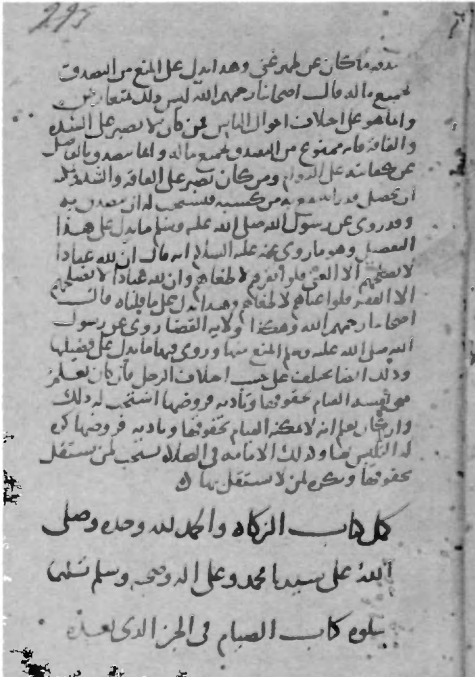 295
صدقة ما كان عن ظهر غنى وهذا يدل على المنع من التصدق
بجميع ماله قال اصحابنا رحمهم الله ليس ذلك متعارض
وانما هو على اختلاف احوال الناس فمن كان لا يصبر على الشدة
والفاقة فانه ممنوع من التصدق بجميع ماله وانما يتصدق بالفاضل
عن كفايته على الدوام ومن كان يصبر على الفاقة والشدة
ان يحصل من كسبه فيستحب له ان يتصدق به
وقد روي عن رسول الله صلى الله عليه وسلم ما يدل على هذا
التفصيل وهو ما روي عنه عليه السلام انه قال ان لله عبادا
لا يصلحهم الا الغنى فلو افقرهم لاطغاهم وان لله عبادا لا يصلحهم
الا الفقر فلو اغناهم لاطغاهم وهذا يدل على ما قلناه قالت
اصحابنا رحمهم الله وهكذا ولاية القضا روي عن رسول
الله صلى الله عليه وسلم المنع منها وروي فيها ما يدل على فضيلتها
وذلك ايضا يختلف على حسب اختلاف الرجل فان كان يعلم من
نفسه القيام بحقوقها وتادية فروضها استحب له ذلك
وان كان يعلم انه لا يمكنه القيام بحقوقها وتادية فروضها كره
له التلبس بها وكذلك الامامة في الصلاة يستحب لمن يستقل
بحقوقها ويكره لمن لا يستقل بها
كمل كتاب الزكاة والحمد لله وحده وصلى
الله على سيدنا محمد وعلى اله وصحبه وسلم تسليما
يتلوه كتاب الصيام في الجز الذي بعده